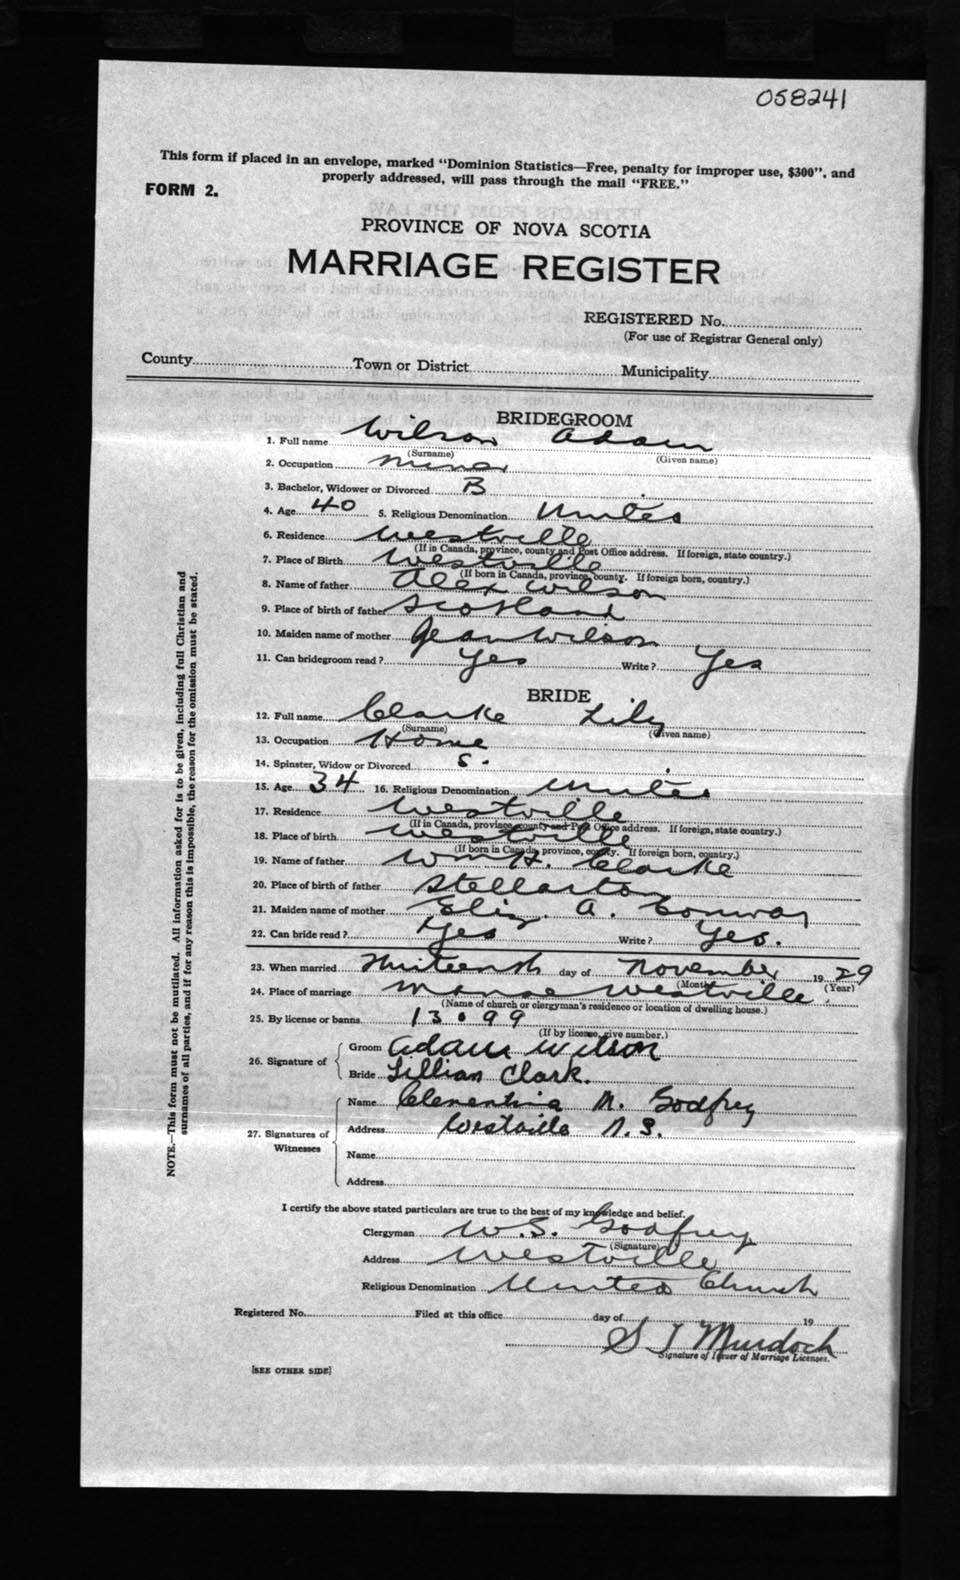 058241
This form if placed in an envelope, marked "Dominion Statistics—Free, penalty for improper use, $300", and
properly addressed, will pass through the mail "FREE."
FORM 2.
PROVINCE OF NOVA SCOTIA
MARRIAGE REGISTER
REGISTERED No.
(For use of Registrar General only)
County Town or District Municipality
BRIDEGROOM
1. Full name Wilson Adam
(Surname) (Given name)
2. Occupation Miner
3. Bachelor, Widower or Divorced B
4. Age 40 5. Religious Denomination United
6. Residence Westville
(If in Canada, province, county and Post Office address. If foreign, state country.)
7. Place of Birth Westville
(If born in Canada, province, county. If foreign born, country.)
8. Name of father Alex Wilson
9. Place of birth of father Scotland
10. Maiden name of mother Jean Wilson
11. Can bridegroom read? Yes Write? Yes
BRIDE
12. Full name Clarke Lily
(Surname) (Given name)
13. Occupation Home
14. Spinster, Widow or Divorced S.
15. Age 34 16. Religious Denomination United
17. Residence Westville
(If in Canada, province, county and Post Office address. If foreign, state country.)
18. Place of birth Westville
(If born in Canada, province, county. If foreign born, country.)
19. Name of father Wm H. Clarke
20. Place of birth of father Stellarton
21. Maiden name of mother Eliz. A. Conway
22. Can bride read? Yes Write? Yes.
23. When married day of November 1929
(Month) (Year)
24. Place of marriage Manse Westville.
(Name of church or clergyman's residence or location of dwelling house.)
25. By license or banns 13099
(If by license, give number.)
26. Signature of
Groom Adam Wilson
Bride Lillian Clark.
27. Signatures of
Witnesses
Name Clementina M. Godfrey
Address Westville N.S.
Name
Address
I certify the above stated particulars are true to the best of my knowledge and belief.
Clergyman W.S. Godfrey
(Signature)
Address Westville
Religious Denomination United Church
Registered No. Filed at this office day of 19
S J Murdoch
Signature of Issuer of Marriage Licenses.
[SEE OTHER SIDE]
NOTE.—This form must not be mutilated. All information asked for is to be given, including full Christian and
surnames of all parties, and if for any reason this is impossible, the reason for the omission must be stated.